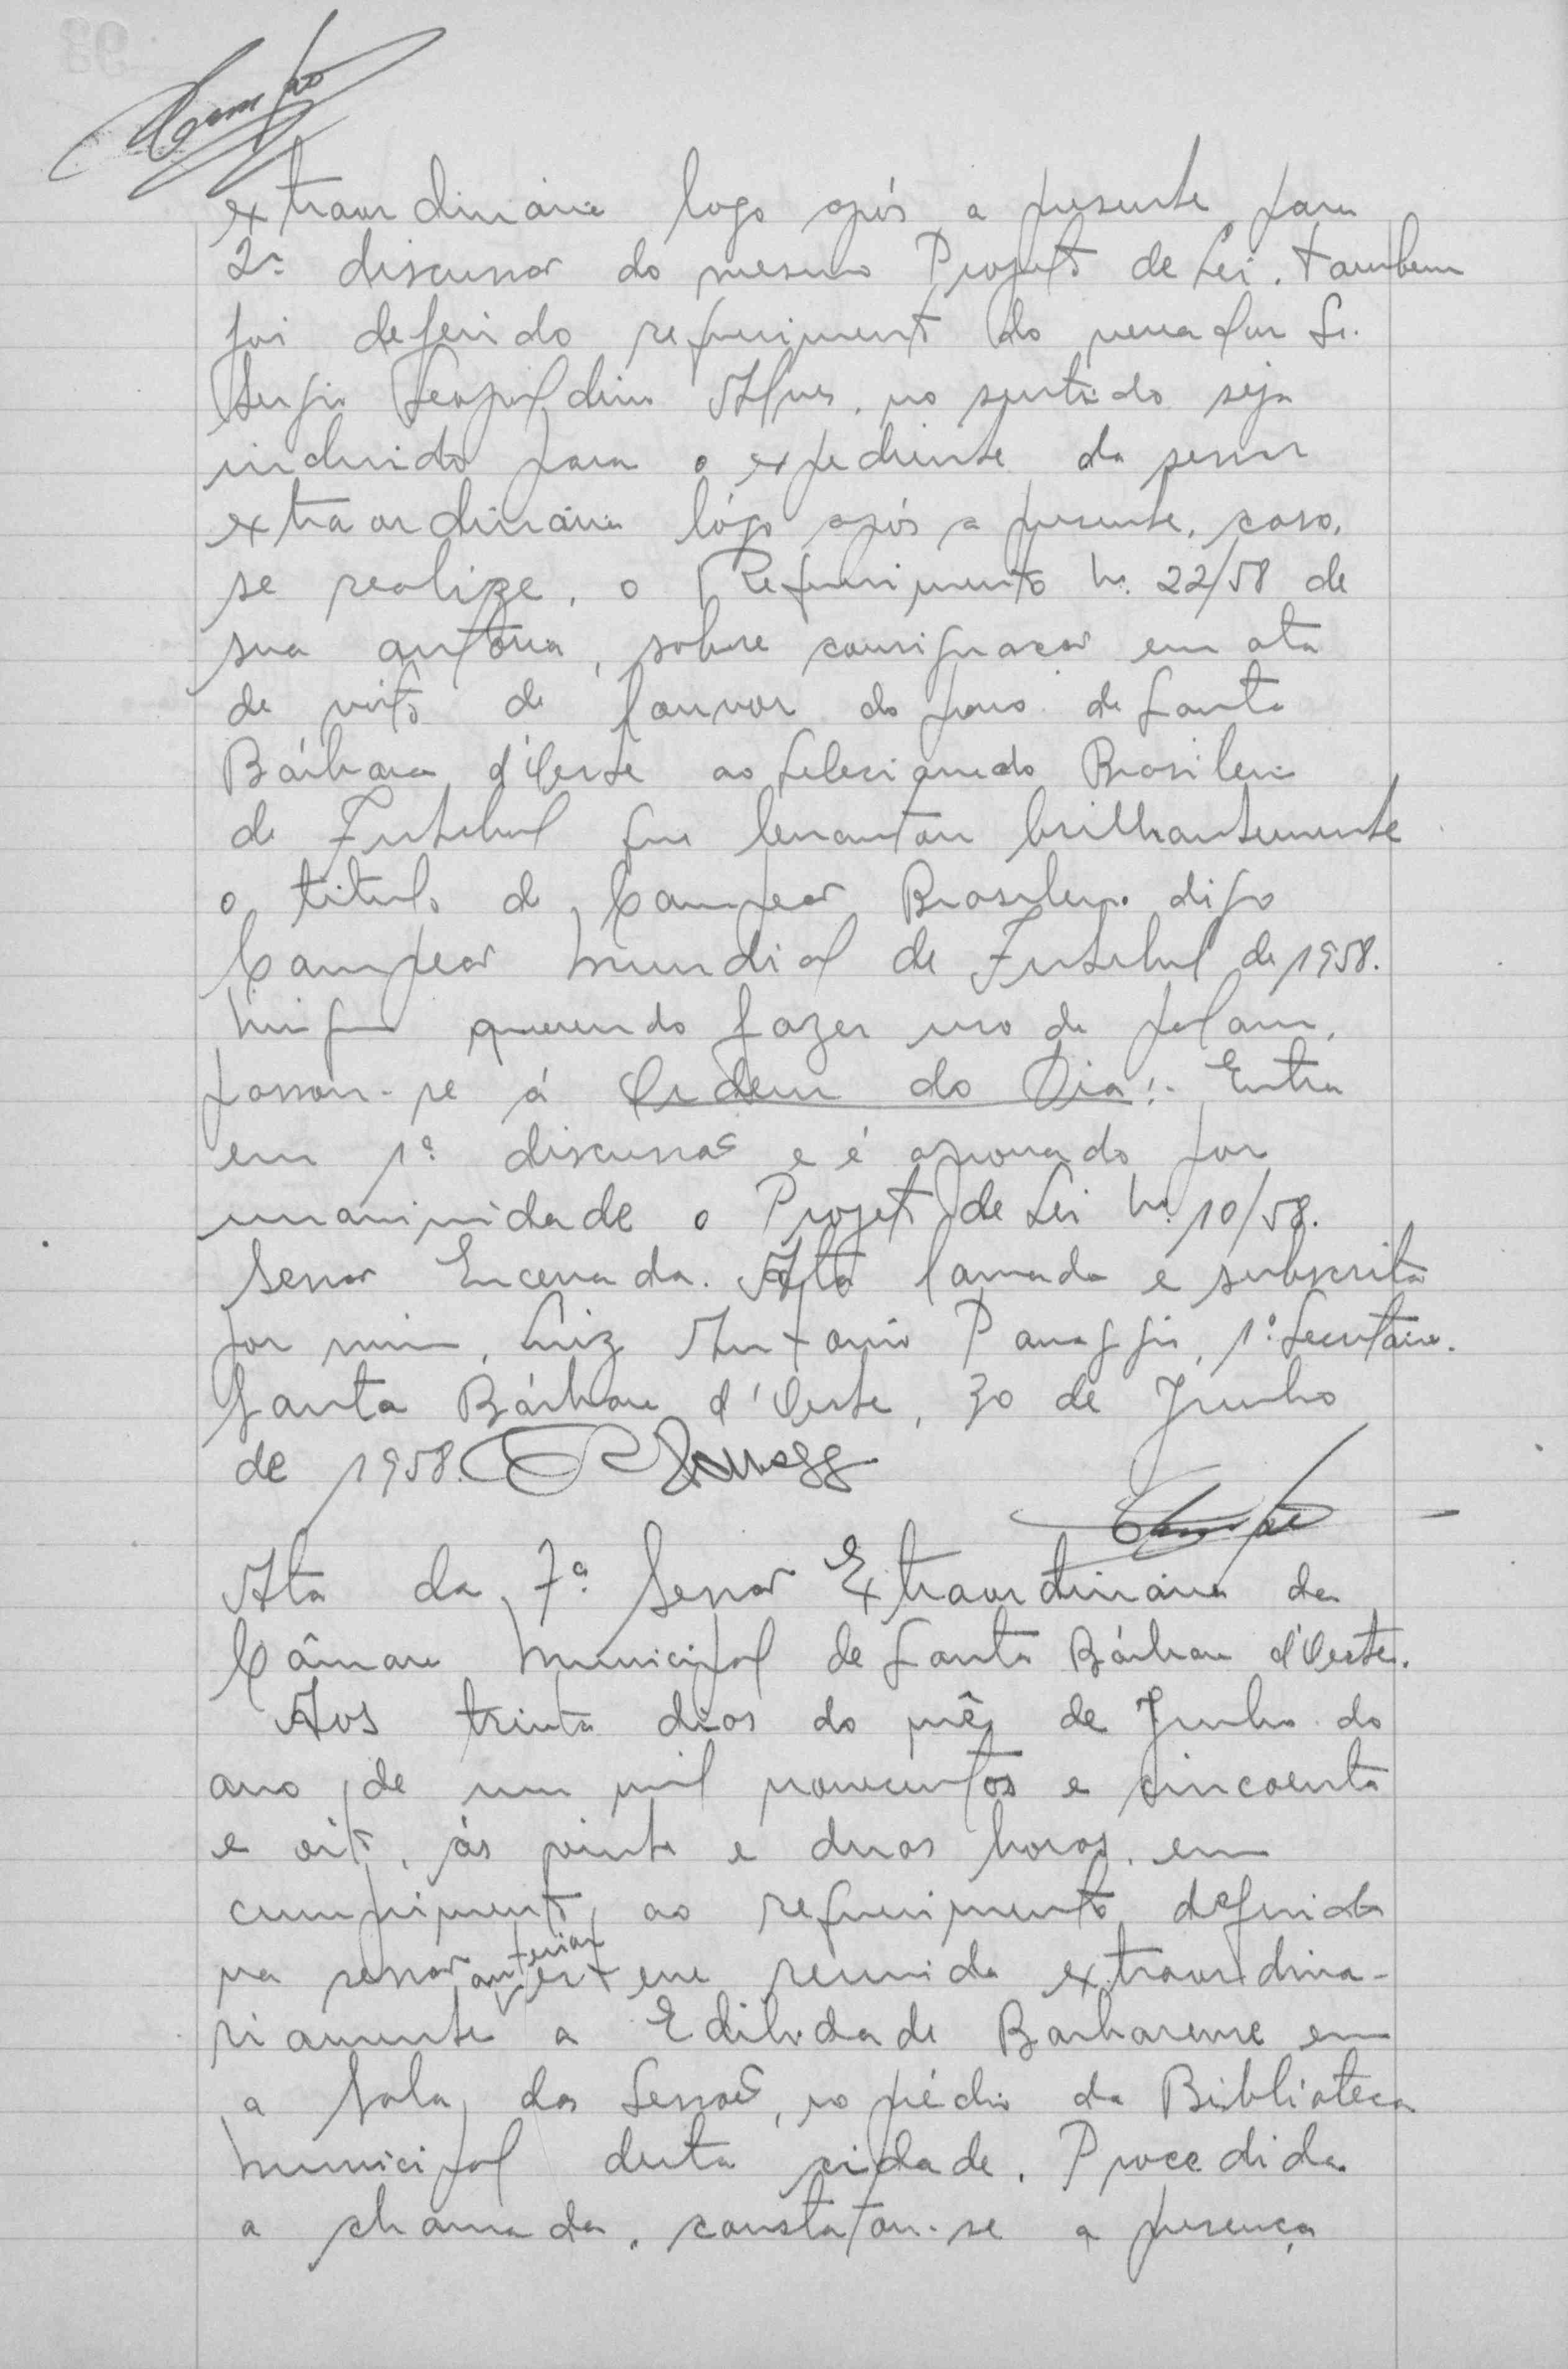 extraordinária logo após a presente para
2ª discussão do mesmo Projeto de Lei. Também
foi deferido requerimento do vereador Sr.
Sergio Leopoldino Alves, no sentido seja
incluido para o expediente da sessão
extraordinária lógo após a presente, caso,
se realize, o Requerimento nº 22/58 de
sua autoria, sobre consignação em ata
de voto de louvor do povo de Santa
Bárbara d'Oeste ao Selecionado Brasileiro
de Futebol que levantou brilhantemente
o titulo de Campeão Brasileiro digo
Campeão Mundial de Futebol de 1958.
Ninguem querendo fazer uso da palavra,
passou-se á Ordem do Dia:- Entra
em 1ª discussão e é aprovado por
unanimidade o Projeto de Lei nº 10/58.
Sessão Encerrada. Ata lavrada e subscrita
por mim, Luiz Antonio Panaggio, 1º Secretário.
Santa Bárbara d'Oeste, 30 de Junho
de 1958.
Ata da 7ª Sessão Extraordinária da
Câmara Municipal de Santa Bárbara d'Oeste.
Aos trinta dias do mês de Junho do
ano de um mil novecentos e cincoenta
e oito, ás vinte e duas horas, em
cumprimento ao requerimento deferido
na sessão anterior esteve reunida extraordina-
riamente a Edilidade Barbarense em
a Sala das Sessões, no prédio da Biblioteca
Municipal desta cidade. Procedida
a chamada, constatou-se a presença